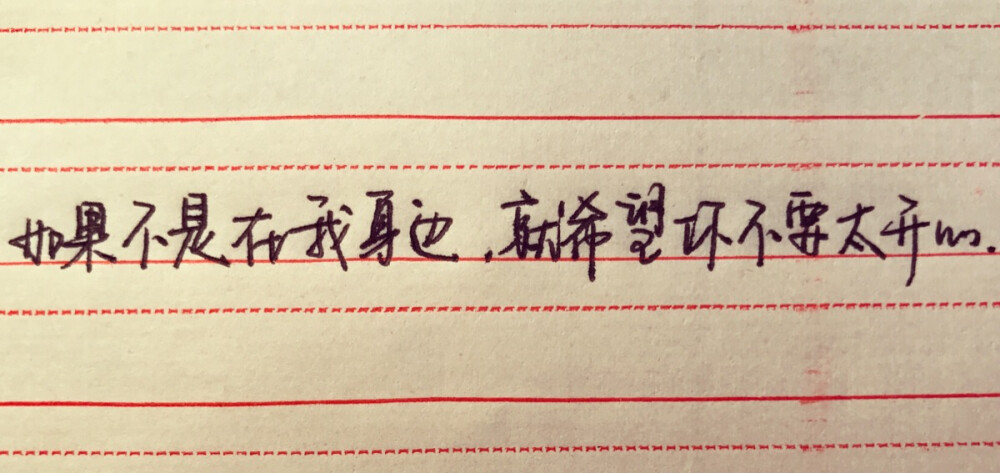 如果不是在我身边,就希望你不要太开心.